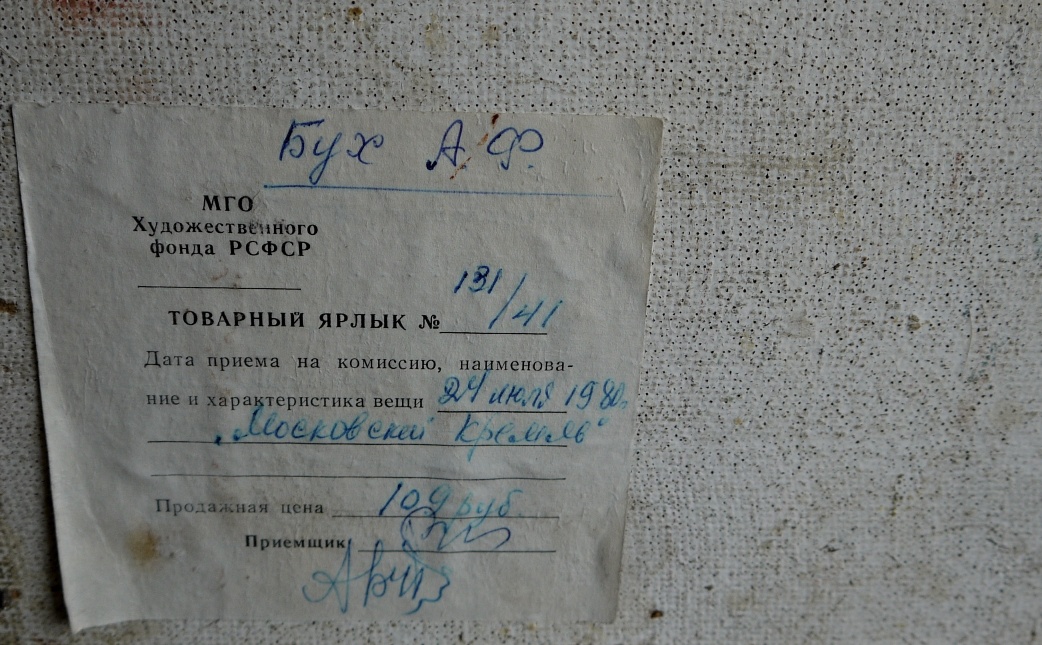 Бух А.Ф.
МГО
Художественного
фонда РСФСР
131/41
ТОВАРНЫЙ ЯРЛЫК №
Дата приема на комиссию, наименова-
ние и характеристика вещи 24 июля 1980г.
„Московский Кремль“
Продажная цена 109 руб.
Приемщик